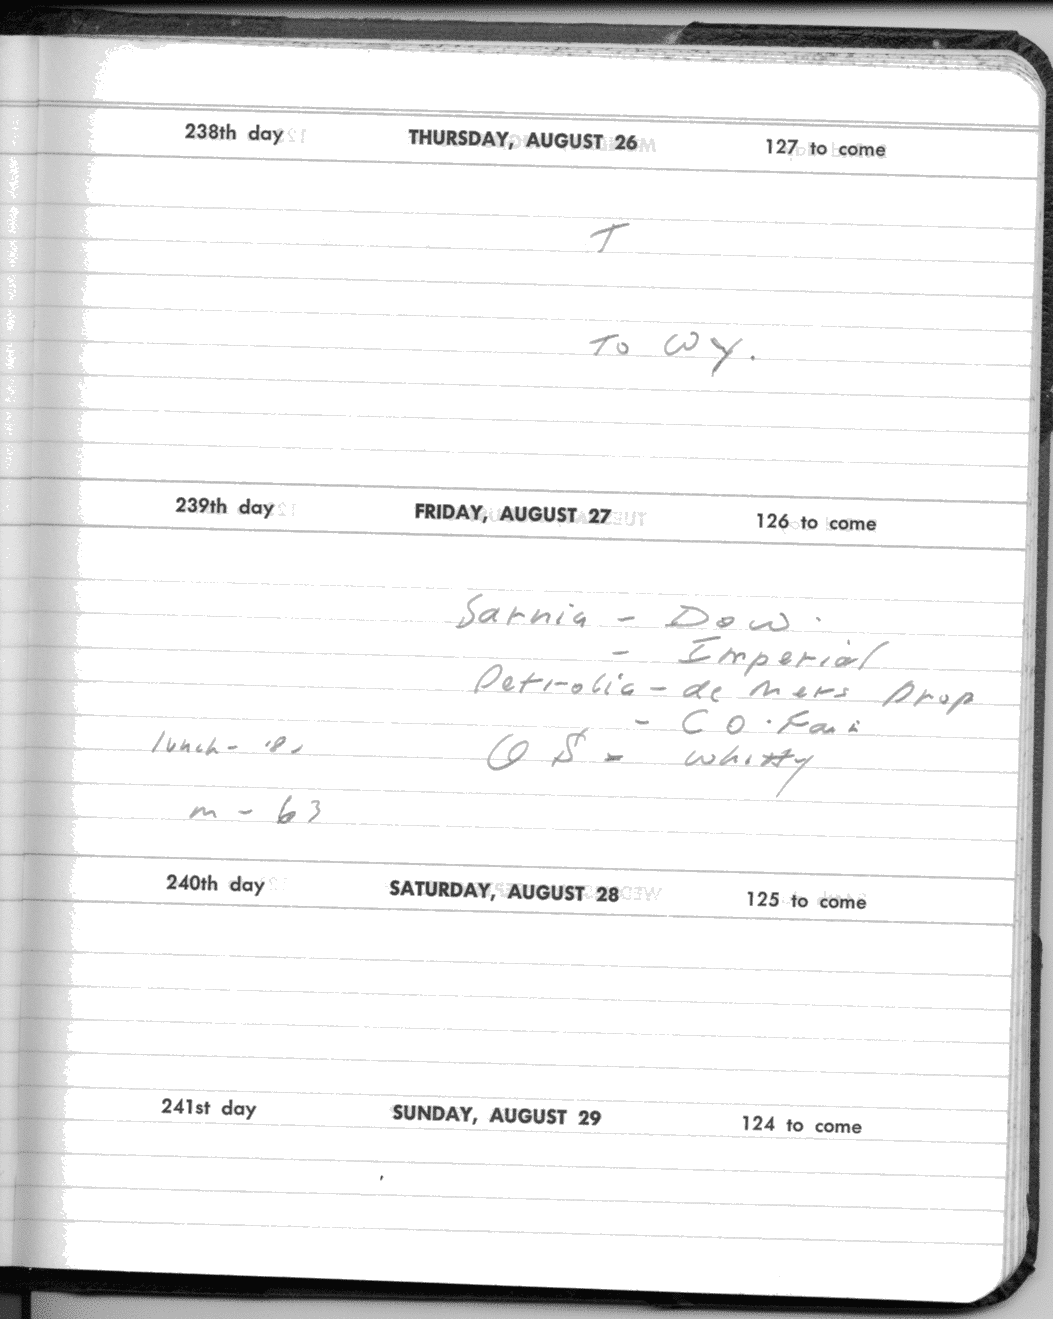 238th day THURSDAY, AUGUST 26 127 to come
T
To Wy.
239th day FRIDAY, AUGUST 27 126 to come
Sarnia - Dow.
- Imperial
Petrolia - de Mers Prop
- CO. Fair
lunch - .8.
OS - Whitty
m - 63
240th day SATURDAY, AUGUST 28 125 to come
241st day SUNDAY, AUGUST 29 124 to come